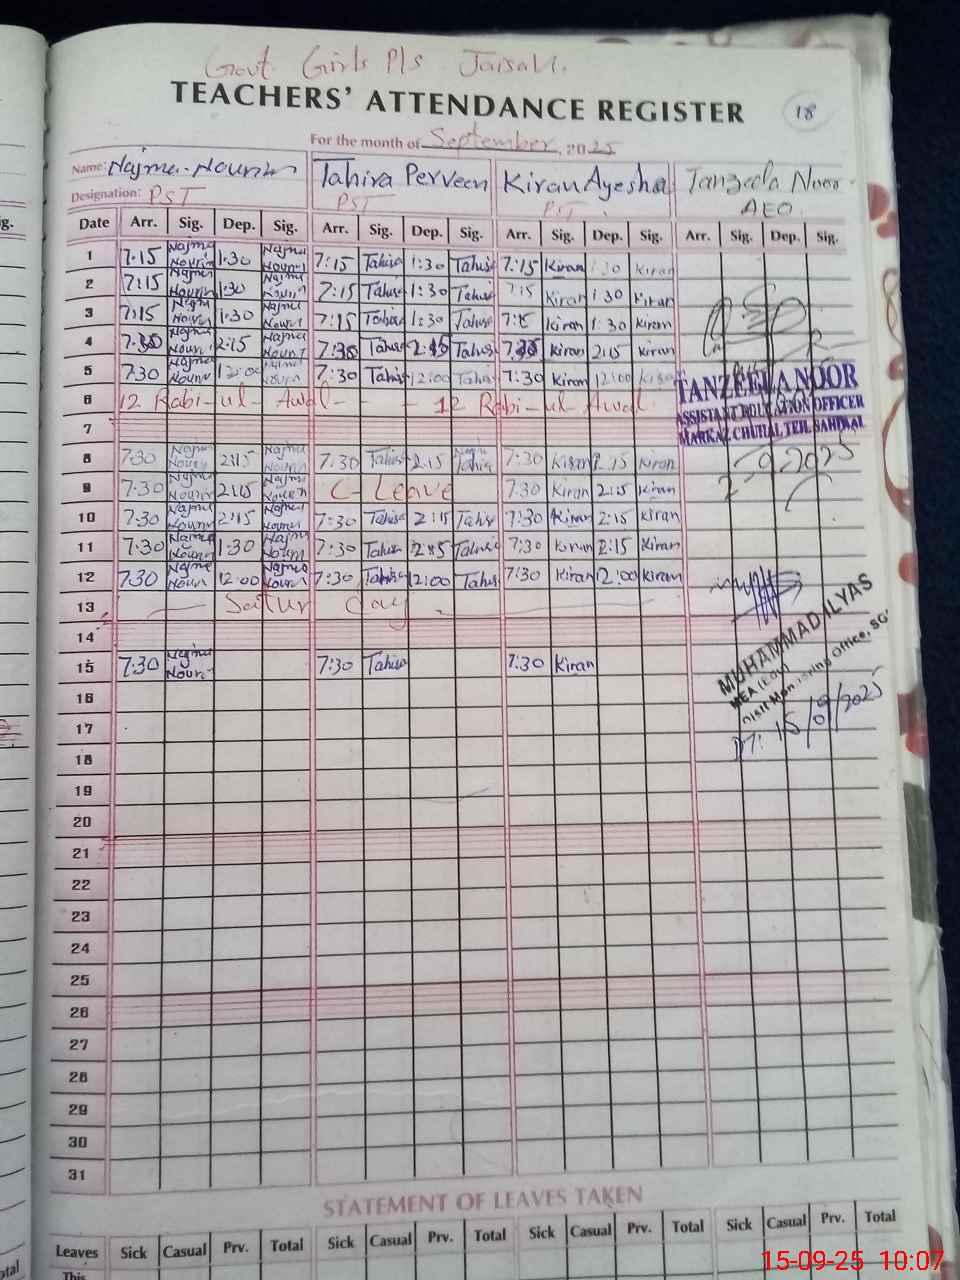 Govt. Girls P/s Jaisali.
TEACHERS' ATTENDANCE REGISTER
18
For the month of September, 2025
Name: Najma-Nourin Tahira Perveen Kiran Ayesha Tanzeela Noor
Designation: PST PST PST AEO
Date Arr. Sig. Dep. Sig. Arr. Sig. Dep. Sig. Arr. Sig. Dep. Sig. Arr. Sig. Dep. Sig.
1 7:15 Najma Nourin 1:30 Najma Nourin 7:15 Tahira 1:30 Tahira 7:15 Kiran 1:30 Kiran
2 7:15 Najma Nourin 1:30 Najma Nourin 7:15 Tahira 1:30 Tahira 7:15 Kiran 1:30 Kiran
3 7:15 Najma Nourin 1:30 Najma Nourin 7:15 Tahira 1:30 Tahira 7:15 Kiran 1:30 Kiran
4 7:30 Najma Nourin 2:15 Najma Nourin 7:30 Tahira 2:15 Tahira 7:30 Kiran 2:15 Kiran
5 7:30 Najma Nourin 12:00 Najma Nourin 7:30 Tahira 12:00 Tahira 7:30 Kiran 12:00 Kiran
6 12 Rabi-ul-Awal - - - 12 Rabi-ul-Awal
TANZEELA NOOR
ASSISTANT EDUCATION OFFICER
MARKAZ CHUHAL TEH. SAHIWAL
7
8 7:30 Najma Nourin 2:15 Najma Nourin 7:30 Tahira 2:15 Tahira 7:30 Kiran 2:15 Kiran
9 7:30 Najma Nourin 2:15 Najma Nourin C-Leave 7:30 Kiran 2:15 Kiran
10 7:30 Najma Nourin 2:15 Najma Nourin 7:30 Tahira 2:15 Tahira 7:30 Kiran 2:15 Kiran
11 7:30 Najma Nourin 1:30 Najma Nourin 7:30 Tahira 2:15 Tahira 7:30 Kiran 2:15 Kiran
12 7:30 Najma Nourin 12:00 Najma Nourin 7:30 Tahira 12:00 Tahira 7:30 Kiran 12:00 Kiran
13 Satur day
14
15 7:30 Najma Nourin 7:30 Tahira 7:30 Kiran
MUHAMMAD ILYAS
MEA (Edu)
Office, SG
DT: 15/09/2025
16
17
18
19
20
21
22
23
24
25
26
27
28
29
30
31
STATEMENT OF LEAVES TAKEN
Leaves Sick Casual Prv. Total Sick Casual Prv. Total Sick Casual Prv. Total Sick Casual Prv. Total
This
15-09-25 10:07